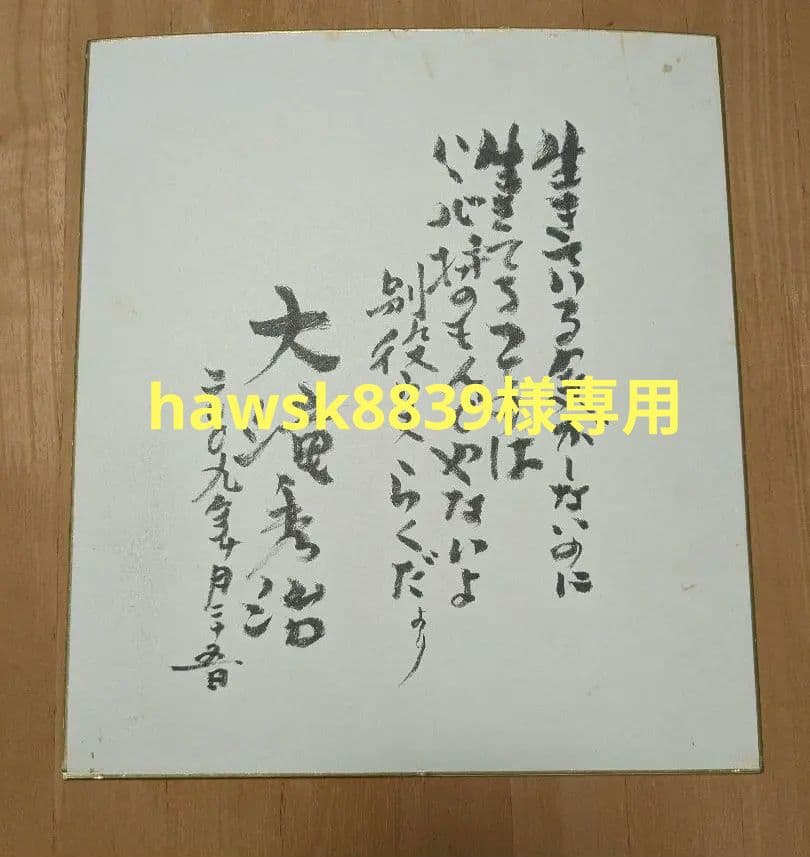 生きている気がしないのに
生きてることは
いい心持のもんじゃないよ
別役 らくだより
大滝秀治
二〇〇九年十月二十五日
hawsk8839様専用